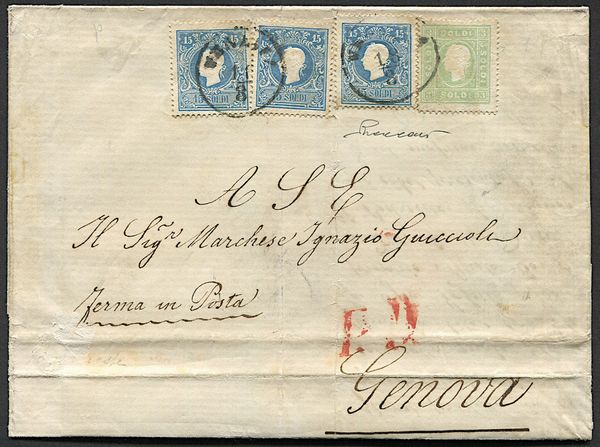 15 15 15 SOLDI 3
SOLDI SOLDI SOLDI SOLDI 3
A S E
Il Sigr Marchese Ignazio Guiccioli
Ferma in Posta
P.D
Genova